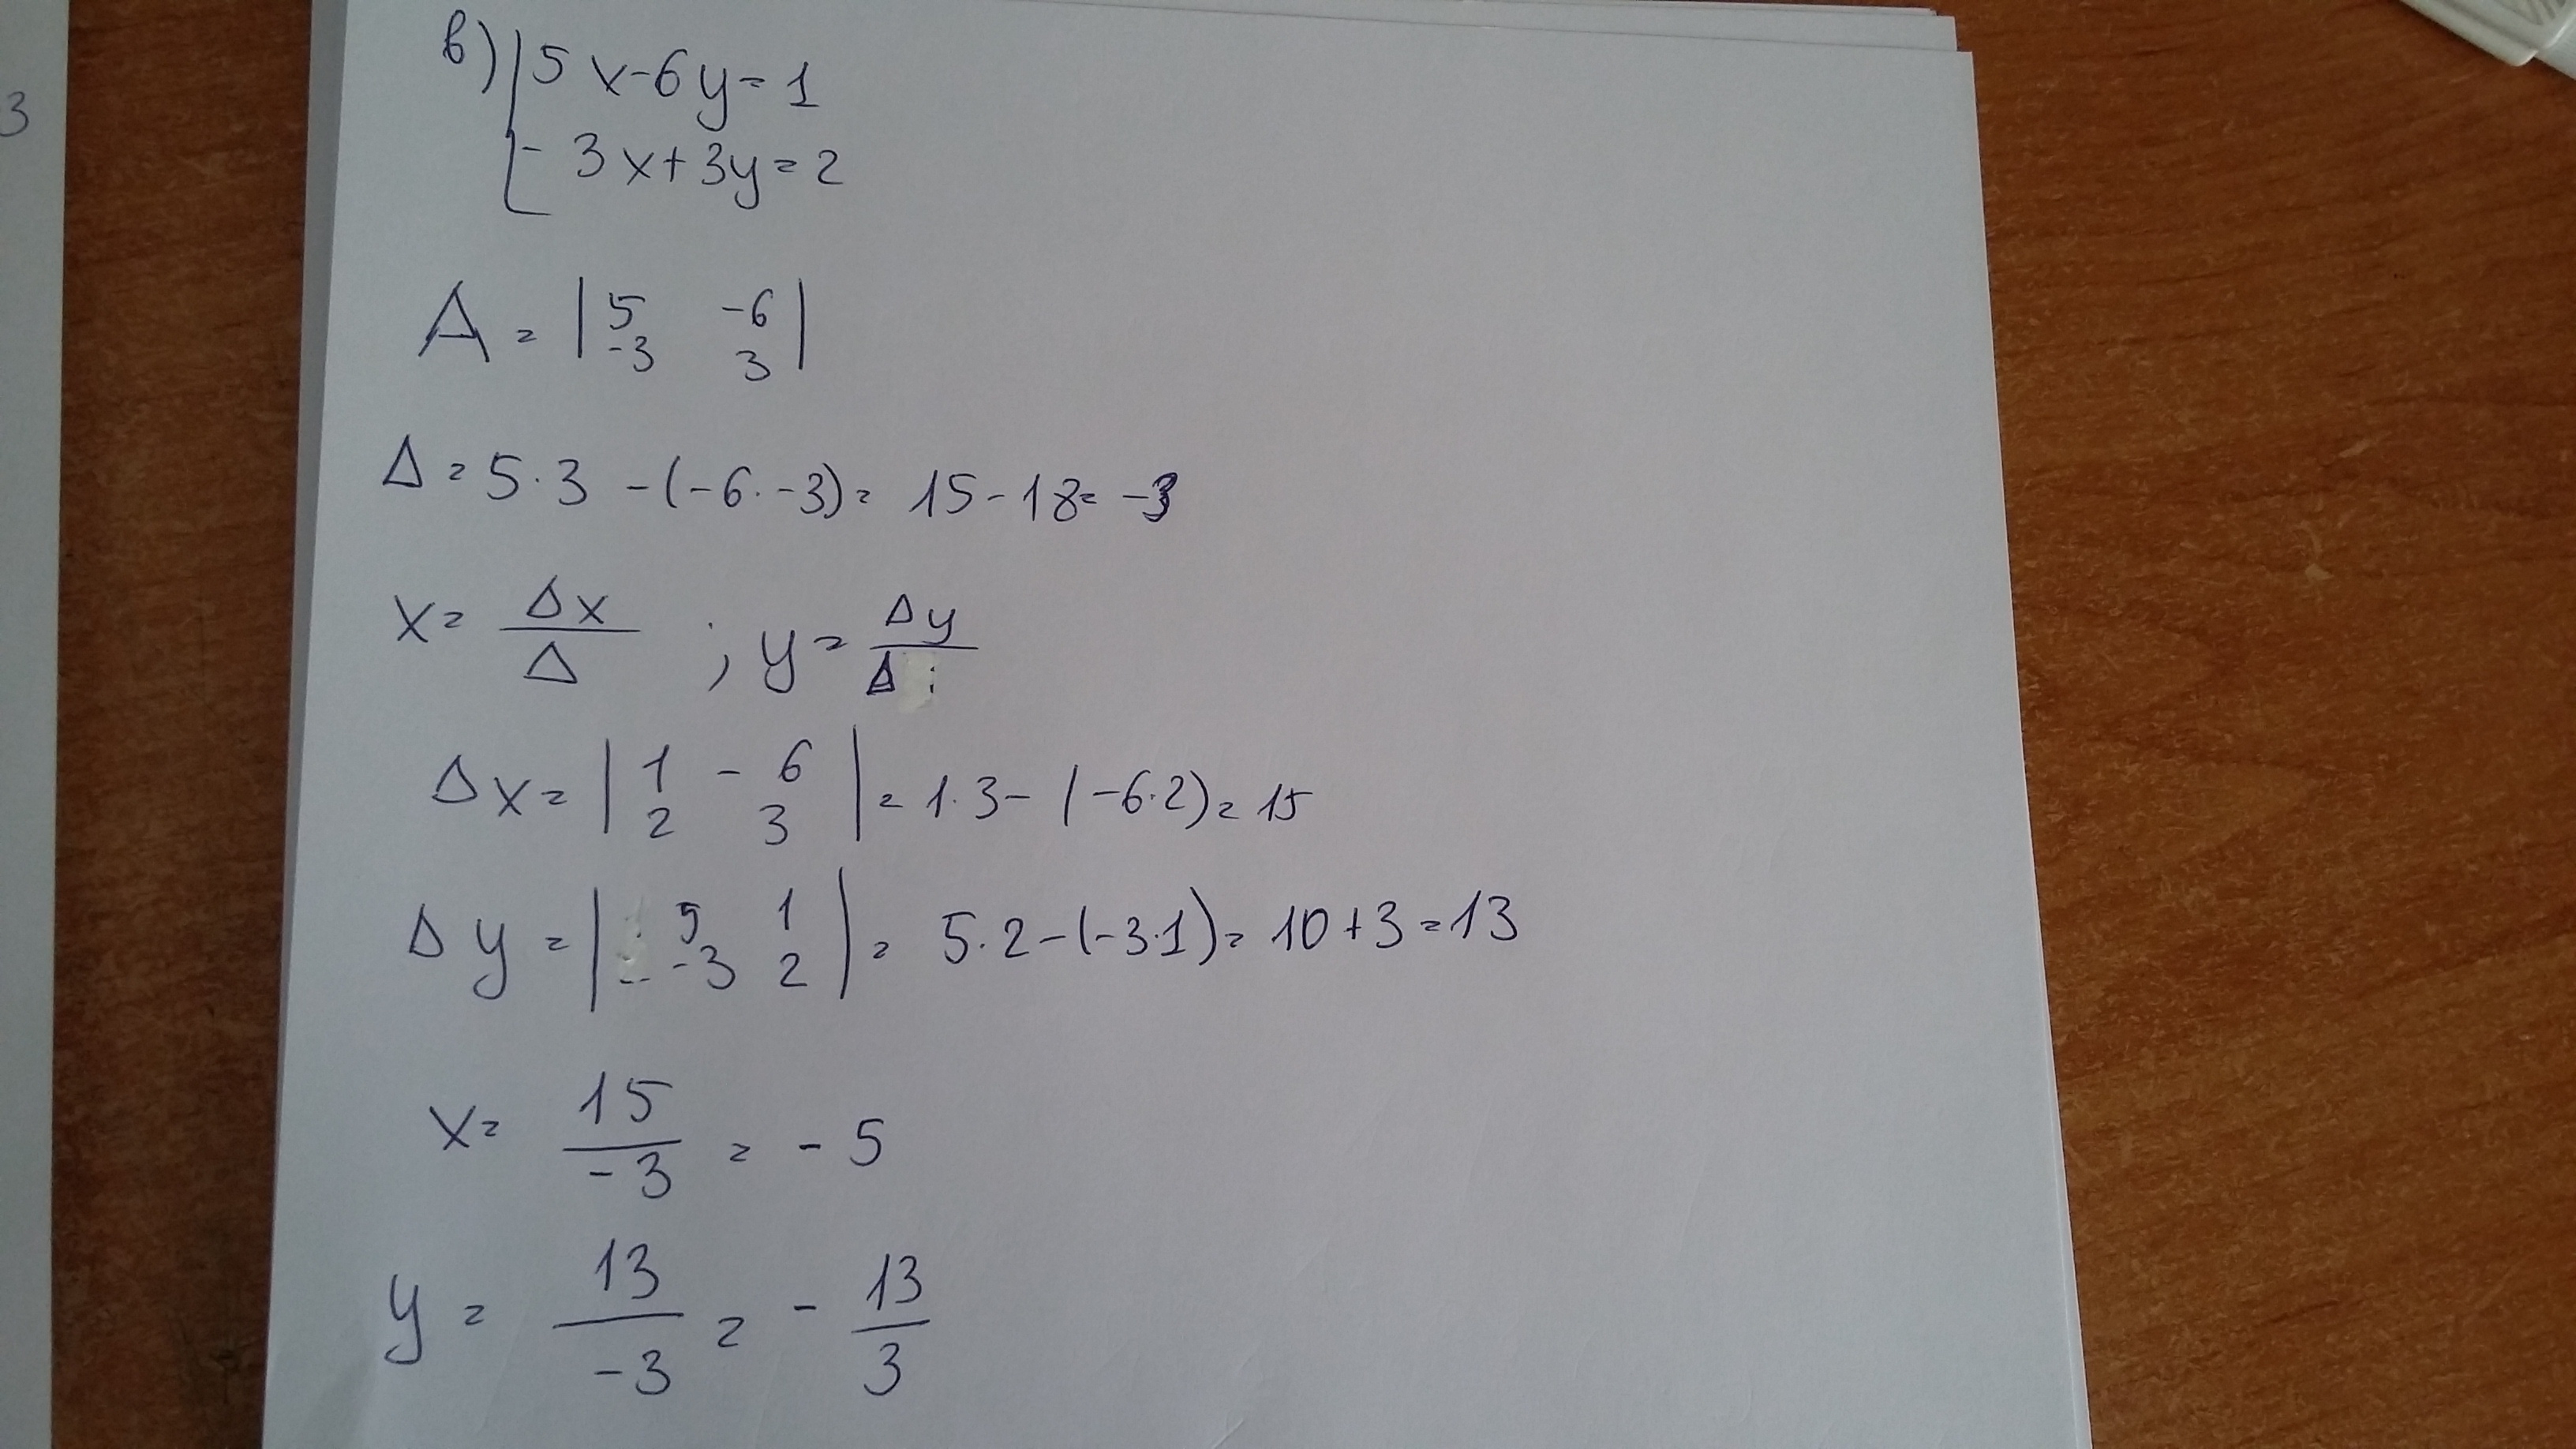 3
в) 5x-6y=1
-3x+3y=2
A = | 5 -6 |
-3 3
Δ = 5·3 -(-6·-3)= 15-18= -3
x= Δx/Δ ; y= Δy/Δ
Δx= | 1 -6 | = 1·3-(-6·2)= 15
2 3
Δy = | 5 1 | = 5·2-(-3·1)= 10+3=13
-3 2
x= 15/-3 = -5
y = 13/-3 = - 13/3